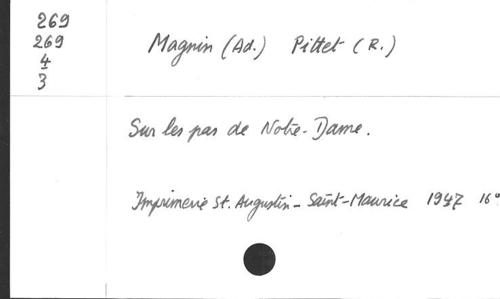 269
269
4
3
Magnin (Ad.) Pittet (R.)
Sur les pas de Notre-Dame.
Imprimerie St. Augustin - Saint-Maurice 1947 16°